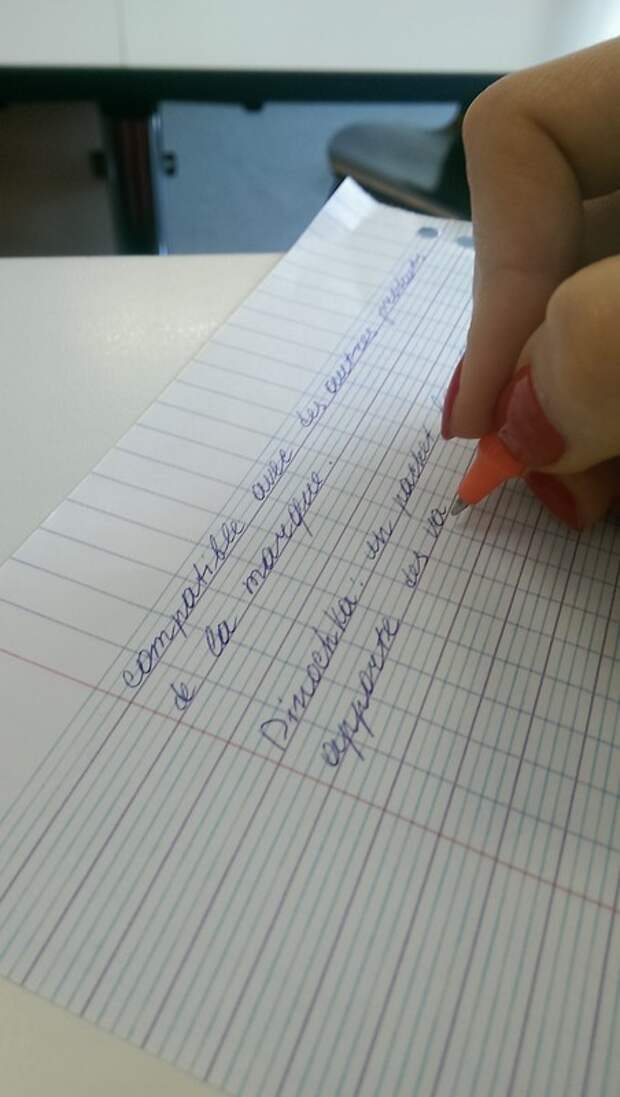 compatible avec des autres produits
de la marque.
Dinochka: un parfum
apporte des va